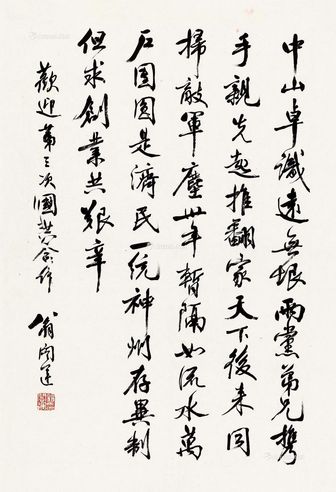 中山卓識遠無垠兩黨弟兄攜
手親先起推翻家天下後來同
掃敵軍塵卅年暫隔如流水萬
戶團圓是濟民一統神州存異制
但求創業共艱辛
歡迎第三次國共合作 翁闓運